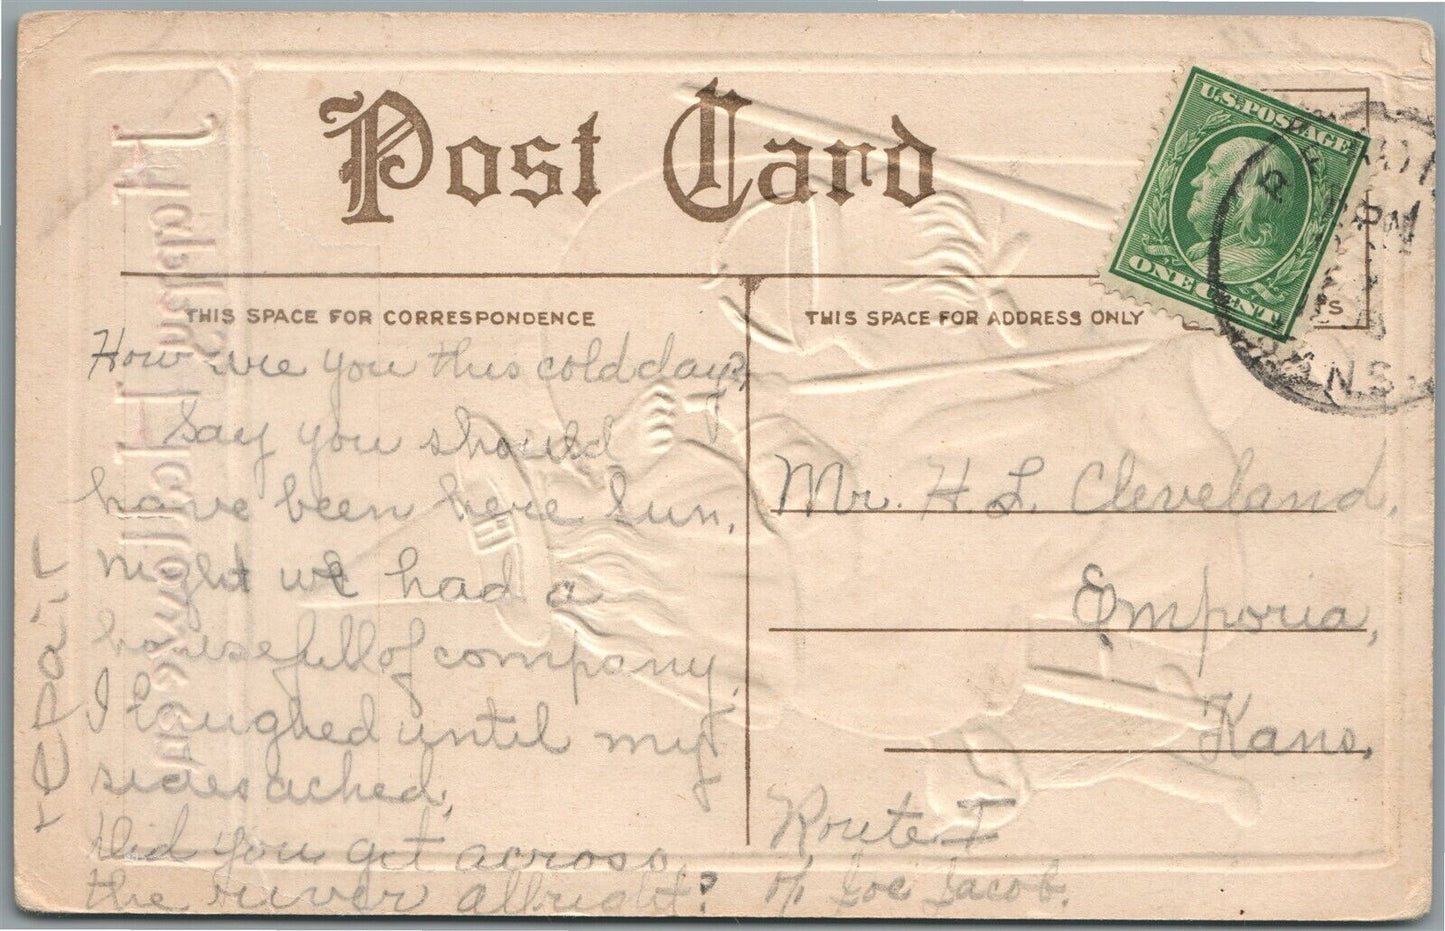 Post Card
U.S. POSTAGE
ONE CENT
THIS SPACE FOR CORRESPONDENCE
THIS SPACE FOR ADDRESS ONLY
How are you this cold day?
Say you should
have been here Sun.
night we had a
housefull of company.
I laughed until my
sides ached,
Did you get across
the river allright?
Mr. H. L. Cleveland,
Emporia,
Kans,
Route I
c/o Joe Jacob.
repair
PM
KANS.